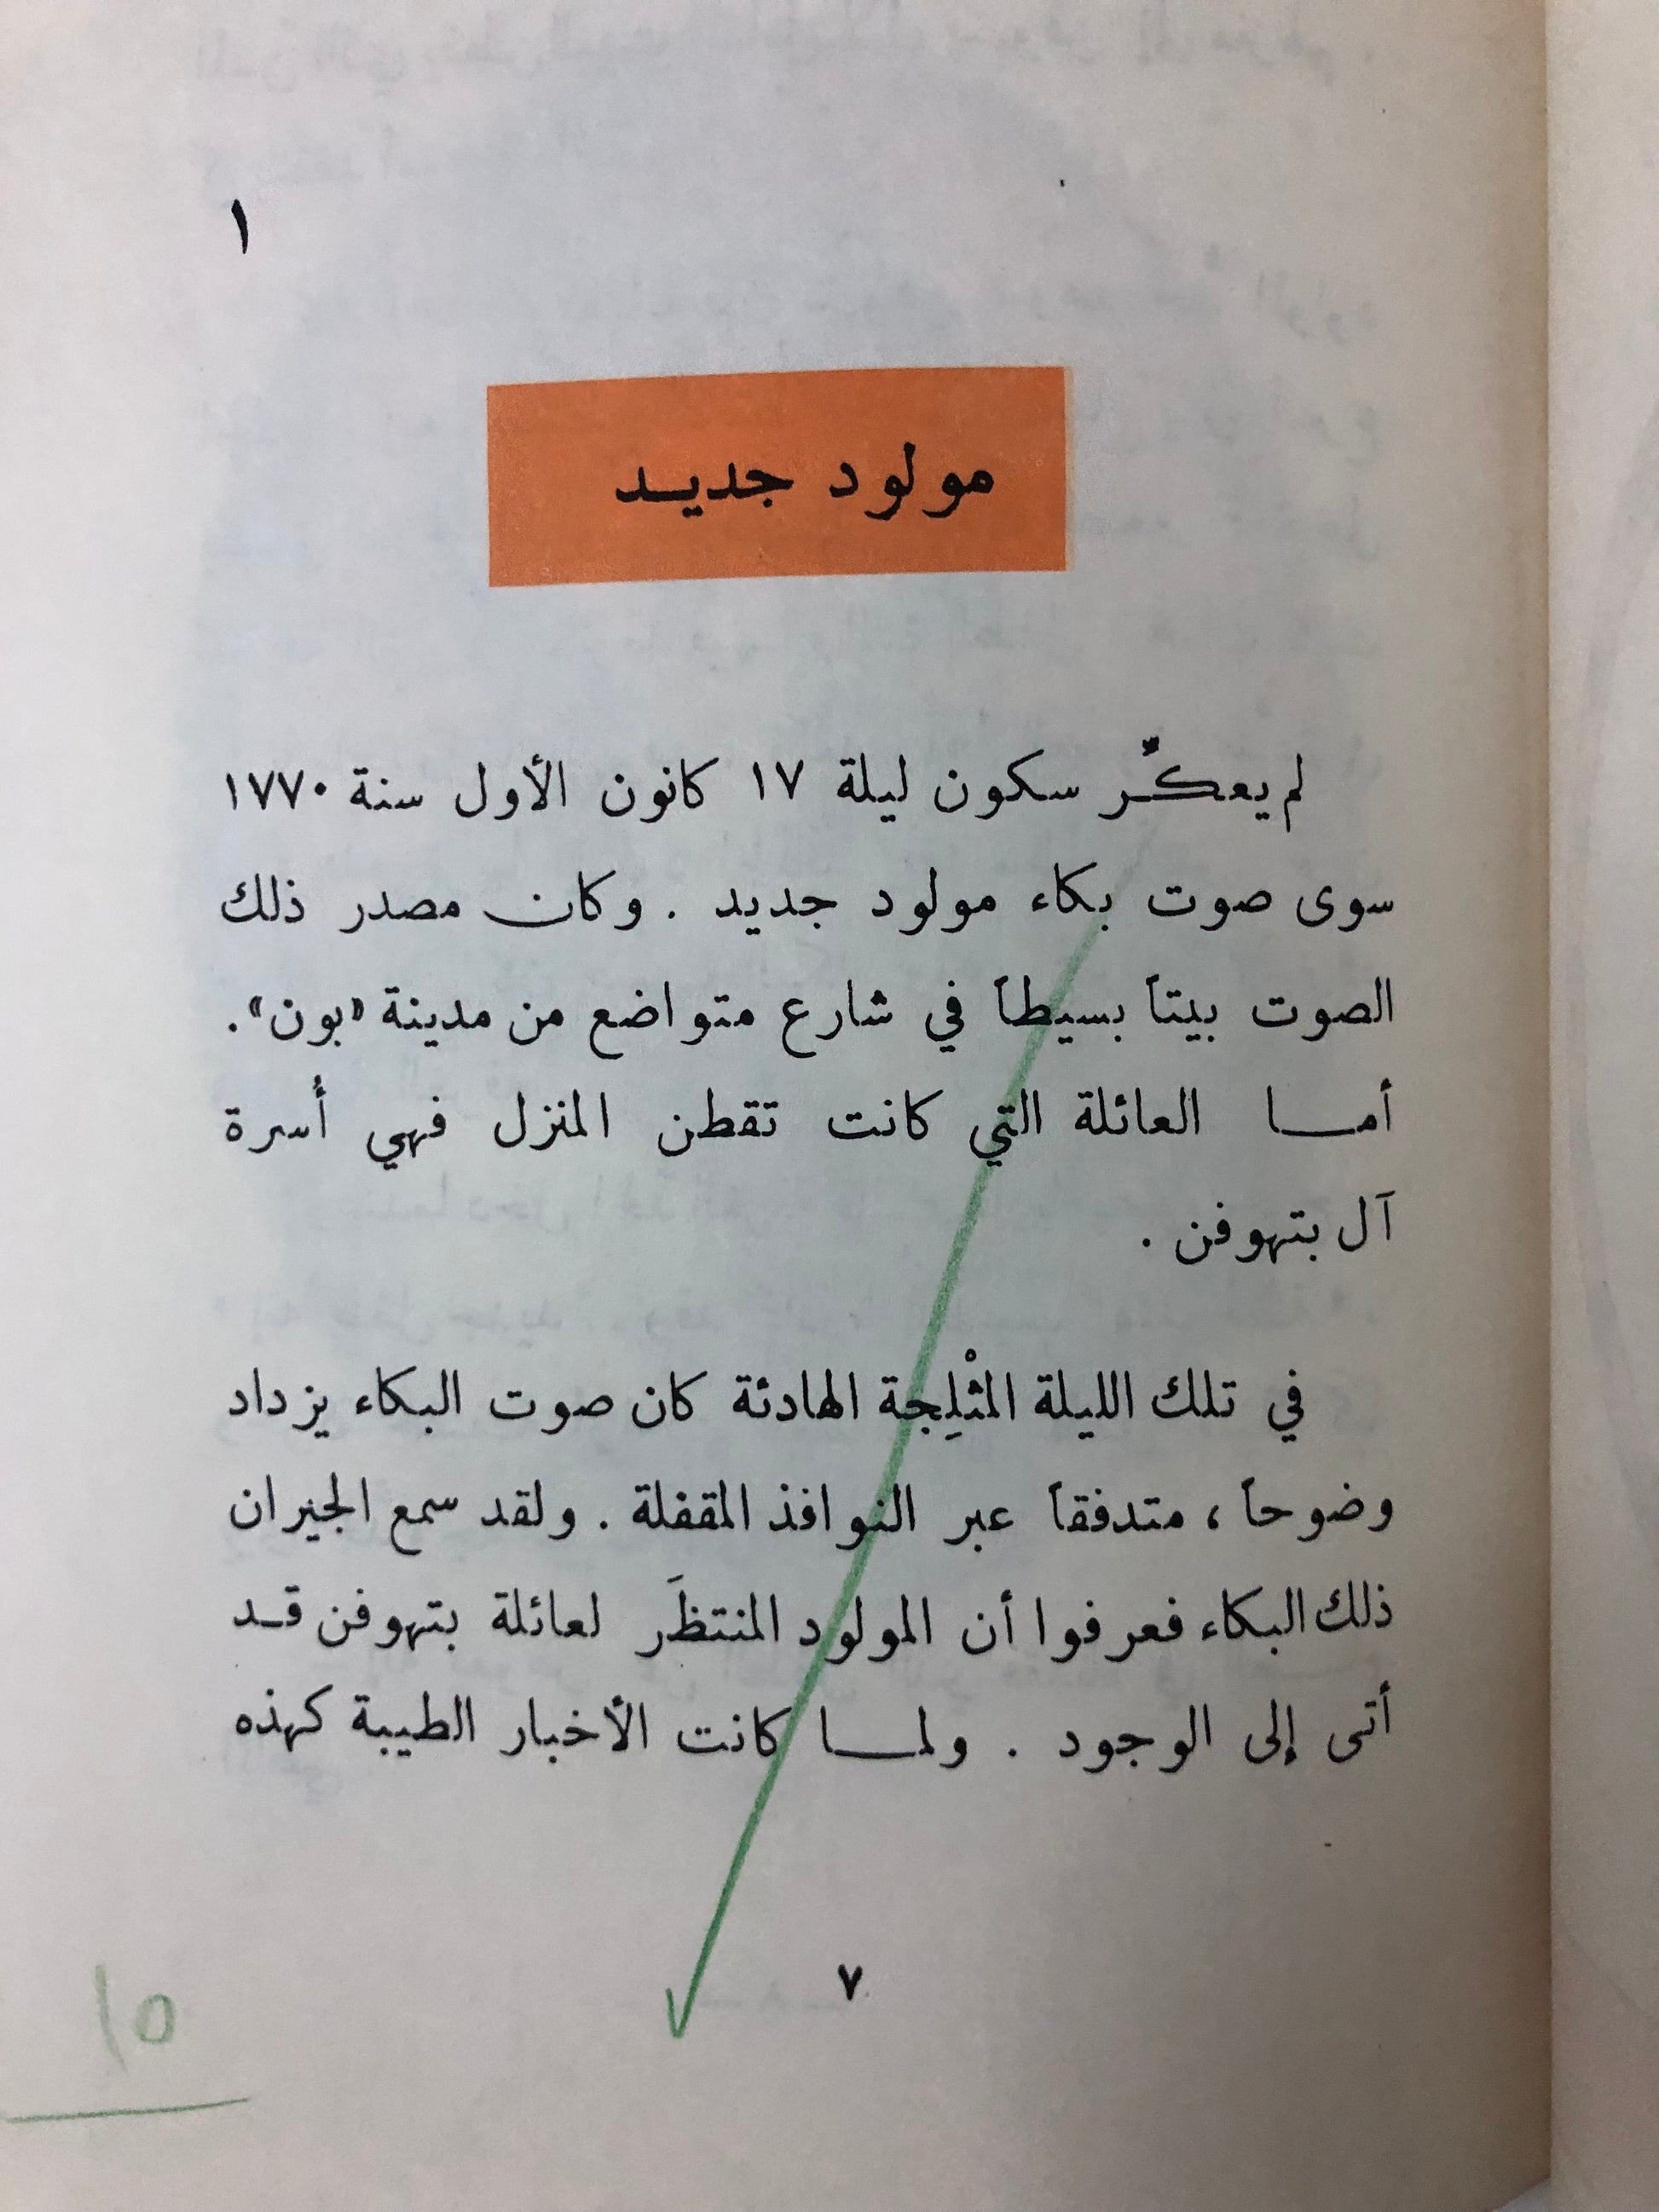 ١
مولود جديد
لم يعكّر سكون ليلة ١٧ كانون الأول سنة ١٧٧٠
سوى صوت بكاء مولود جديد . وكان مصدر ذلك
الصوت بيتاً بسيطاً في شارع متواضع من مدينة «بون».
أما العائلة التي كانت تقطن المنزل فهي أُسرة
آل بتهوفن .
في تلك الليلة المثْلِجة الهادئة كان صوت البكاء يزداد
وضوحاً ، متدفقاً عبر النوافذ المقفلة . ولقد سمع الجيران
ذلك البكاء فعرفوا أن المولود المنتظَر لعائلة بتهوفن قد
أتى إلى الوجود . ولما كانت الأخبار الطيبة كهذه
٧
١٥